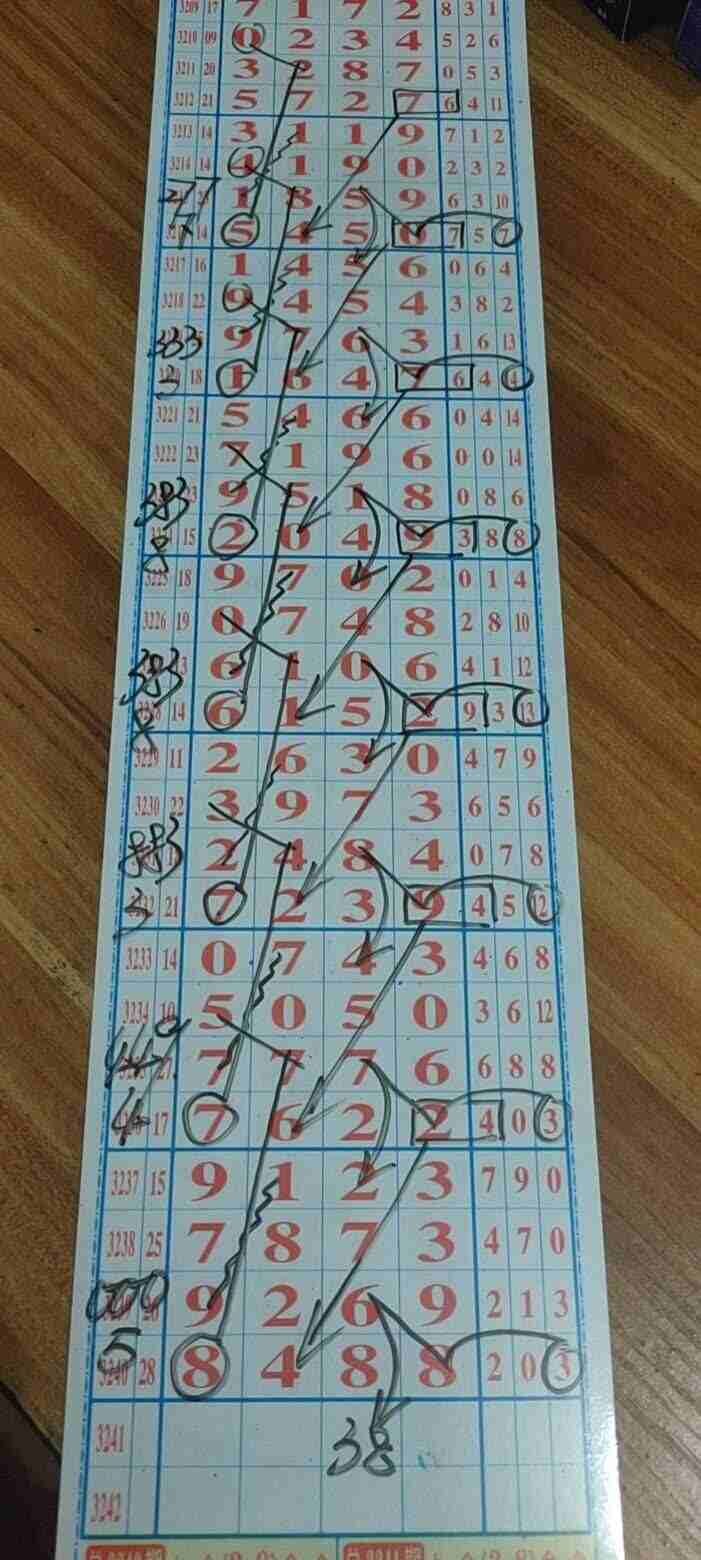 3209 17 7 1 7 2 8 3 1
3210 09 0 2 3 4 5 2 6
3211 20 3 2 8 7 0 5 3
3212 21 5 7 2 7 6 4 11
3213 14 3 1 1 9 7 1 2
3214 14 4 1 9 0 2 3 2
1 8 5 9 6 3 10
14 5 4 5 0 7 5 7
3217 16 1 4 5 6 0 6 4
3218 22 9 4 5 4 3 8 2
333 9 7 6 3 1 6 13
3 18 1 6 4 7 6 4 14
3221 21 5 4 6 6 0 4 14
3222 23 7 1 9 6 0 0 14
383 23 9 5 1 8 0 8 6
8 15 2 0 4 9 3 8 8
3225 18 9 7 0 2 0 1 4
3226 19 0 7 4 8 2 8 10
383 13 6 1 0 6 4 1 12
14 6 1 5 2 9 3 13
3229 11 2 6 3 0 4 7 9
3230 22 3 9 7 3 6 5 6
883 2 4 8 4 0 7 8
3 21 7 2 3 9 4 5 12
3233 14 0 7 4 3 4 6 8
3234 10 5 0 5 0 3 6 12
27 7 7 7 6 6 8 8
4 17 7 6 2 2 4 0 3
3237 15 9 1 2 3 7 9 0
3238 25 7 8 7 3 4 7 0
000 26 9 2 6 9 2 1 3
5
3240 28 8 4 8 8 2 0 3
3241 38
3242